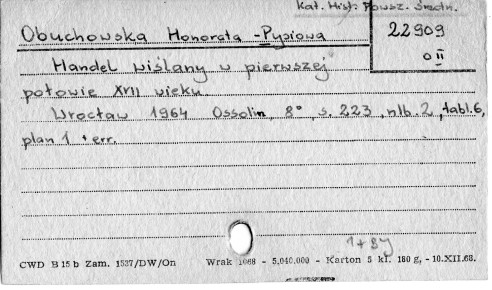 Kat. Hist. Powsz. Średn.
Obuchowska Honorata-Pysiowa
22909
o II
Handel wiślany w pierwszej
połowie XVII wieku.
Wrocław 1964 Ossolin, 8°, s. 223, nlb. 2, tabl. 6,
plan 1 + err.
CWD B 15 b Zam. 1537/DW/On Wrak 1068 - 5.040.000 - Karton 5 kl. 180 g, - 10.XII.68.